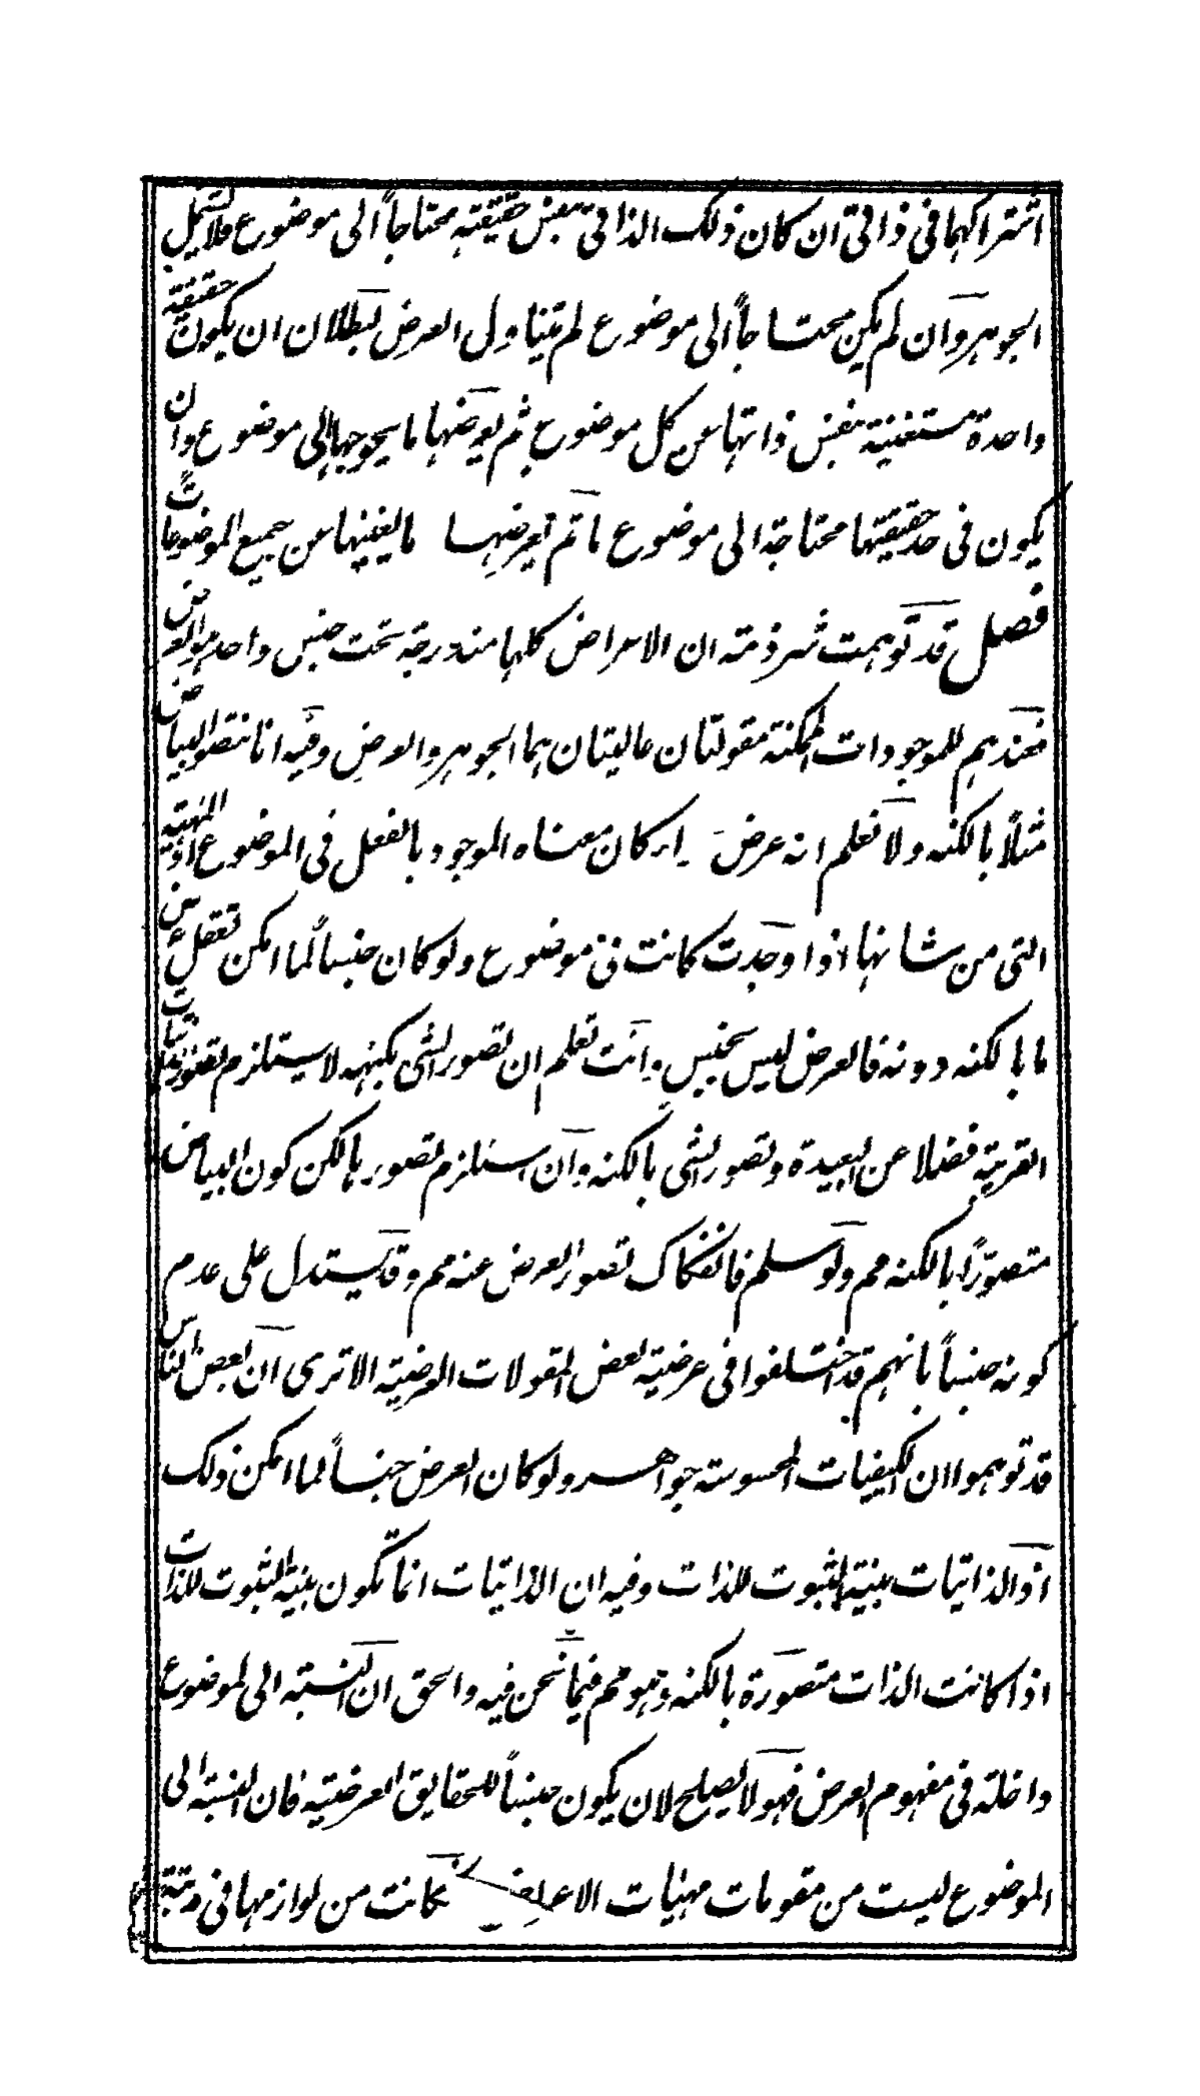 اشتراكهما فى ذاتى ان كان ذلك الذاتى بنفس حقيقته محتاجاً الى موضوع فلا يشمل
الجوهر وان لم يكن محتاجاً الى موضوع لم يتناول العرض لبطلان ان يكون حقيقة
واحدة مستغنية بنفس ذاتها عن كل موضوع ثم يعرضها ما يحوجها الى موضوع وان
يكون فى حد حقيقتها محتاجة الى موضوع ما ثم يعرضها ما يغنيها عن جميع الموضوعات
فصل قد توهمت شرذمة ان الاعراض كلها مندرجة تحت جنس واحد هو العرض
فعندهم للموجودات الممكنة مقولتان عاليتان هما الجوهر والعرض وفيه انا نتصور البياض
مثلاً بالكنه ولا نعلم انه عرض كان معناه الموجود بالفعل فى الموضوع او المهية
التى من شانها اذا وجدت كانت فى موضوع ولو كان جنساً لما امكن تعقل شئ
ما بالكنه دونه فالعرض ليس بجنس وانت تعلم ان تصور الشئ بكنهه لا يستلزم تصور ذاتياته
القريبة فضلا عن البعيدة وتصور الشئ بالكنه وان استلزم تصورها لكن كون البياض
متصوّراً بالكنه مم ولو سلم فانفكاك تصور العرض عنه مم وقد يستدل على عدم
كونه جنساً بانهم قد اختلفوا فى عرضية بعض المقولات العرضية الا ترى ان بعض الناس
قد توهموا ان الكيفيات المحسوسة جواهر ولو كان العرض جنساً لما امكن ذلك
اذ الذاتيات بينة الثبوت للذات وفيه ان الذاتيات انما تكون بينة الثبوت للذات
اذا كانت الذات متصورة بالكنه وهو مم فيما نحن فيه والحق ان النسبة الى الموضوع
داخلة فى مفهوم العرض فهو لا يصلح لان يكون جنساً للحقايق العرضية فان النسبة الى
الموضوع ليست من مقومات مهيات الاعراض كانت من لوازمها فى مرتبة